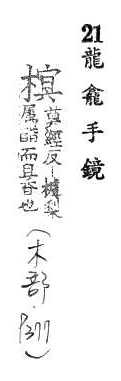 21 龍龕手鏡
榠
莫經反丨樝梨
屬醋而且香也
（木部·P377）